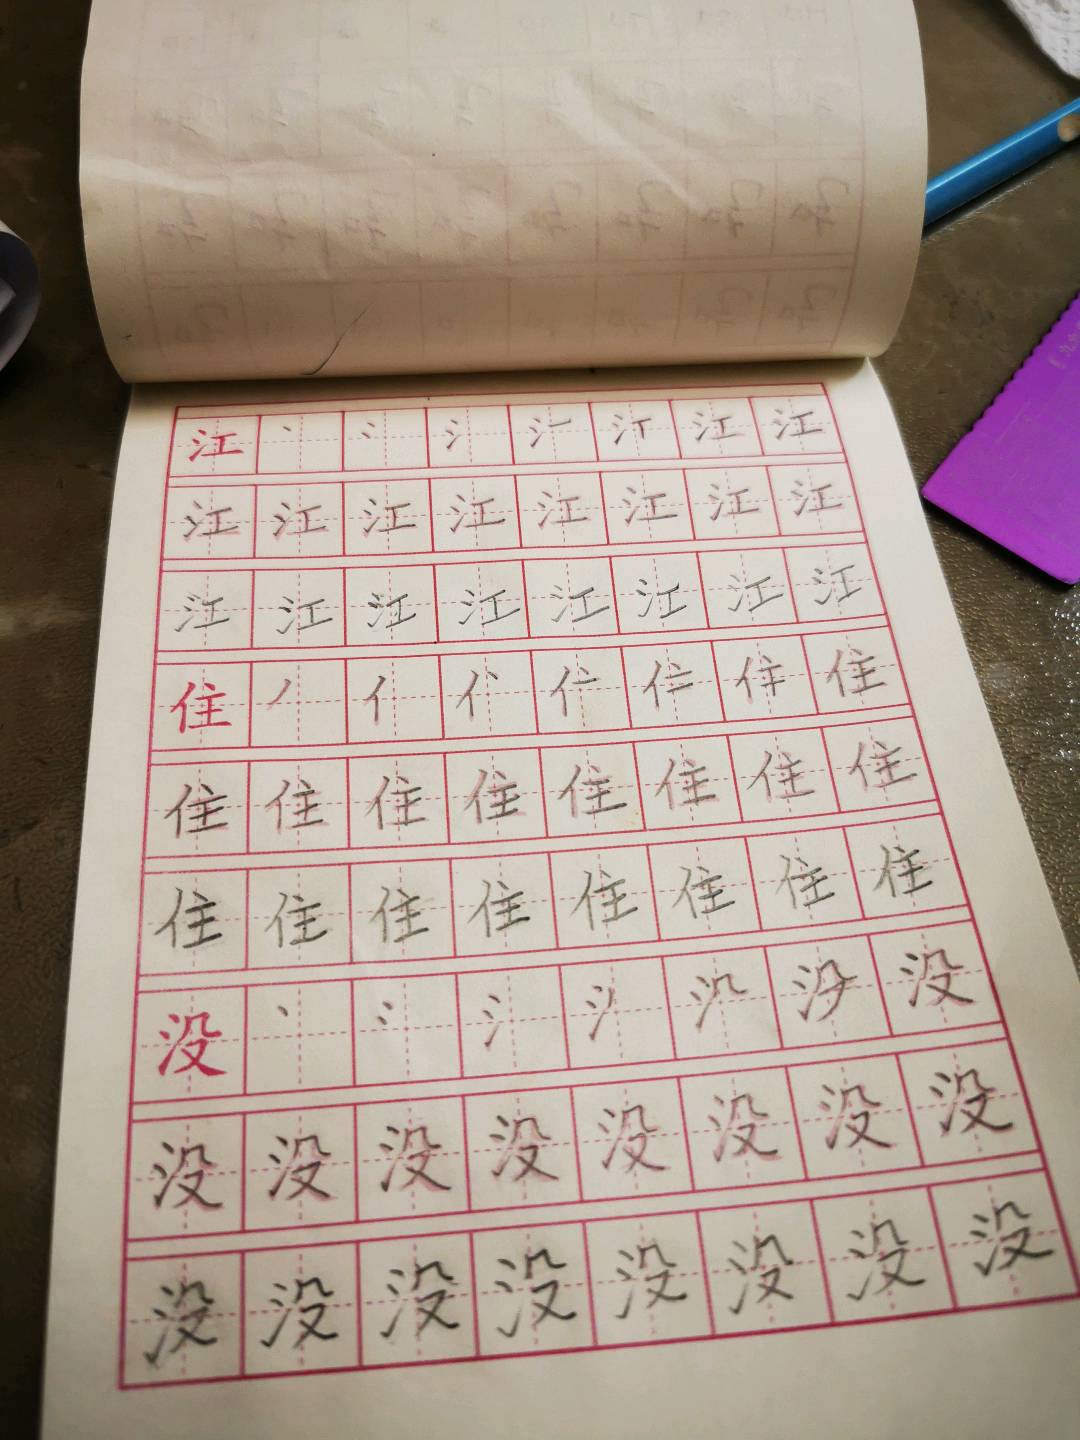 江 丶 冫 氵 江 江
江 江 江 江 江 江 江 江
江 江 江 江 江 江 江 江
住 丿 亻 住
住 住 住 住 住 住 住 住
住 住 住 住 住 住 住 住
没 丶 冫 氵 没
没 没 没 没 没 没 没 没
没 没 没 没 没 没 没 没